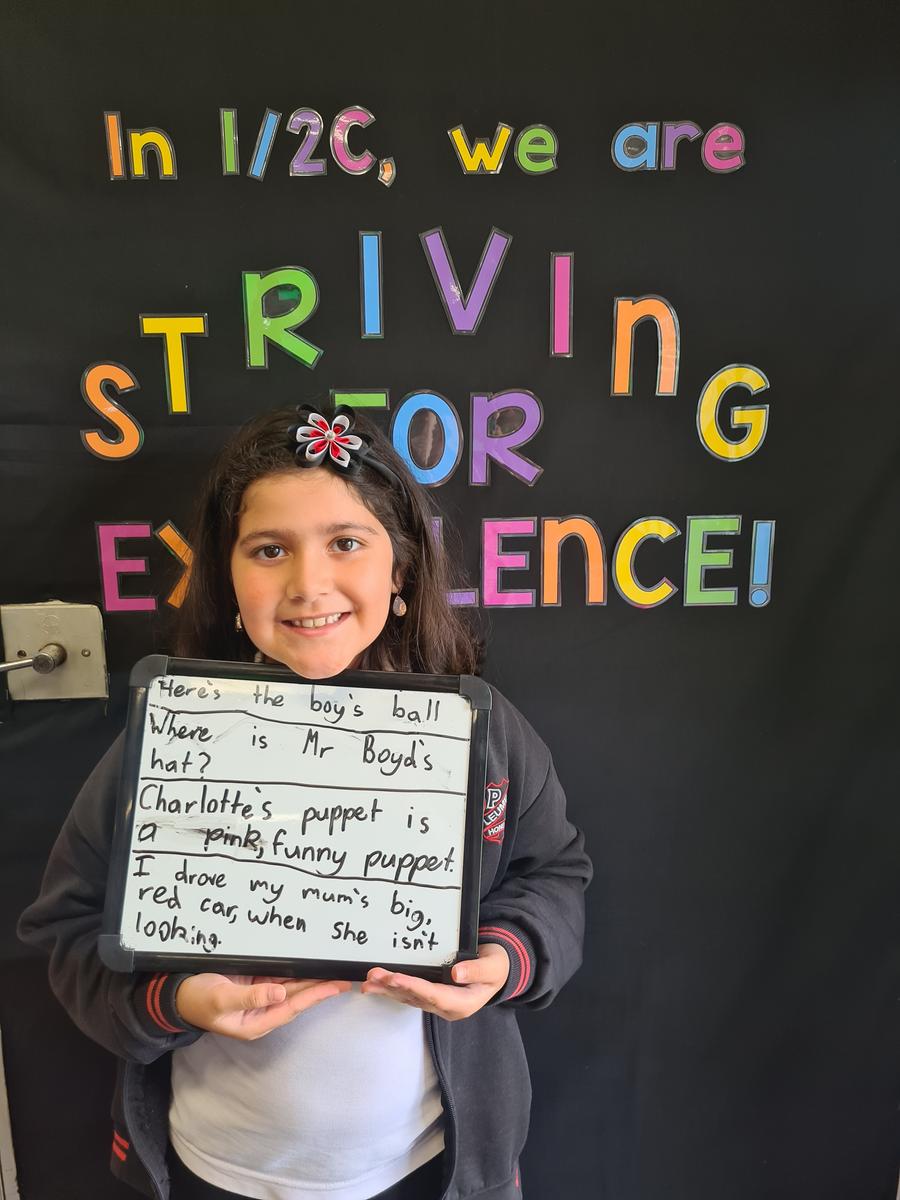 In 1/2C, we are
STRIVInG
FOR
EX LENCE!
Here's the boy's ball
Where is Mr Boyd's
hat?
Charlotte's puppet is
a pink, funny puppet.
I drove my mum's big,
red car, when she isn't
looking.
P